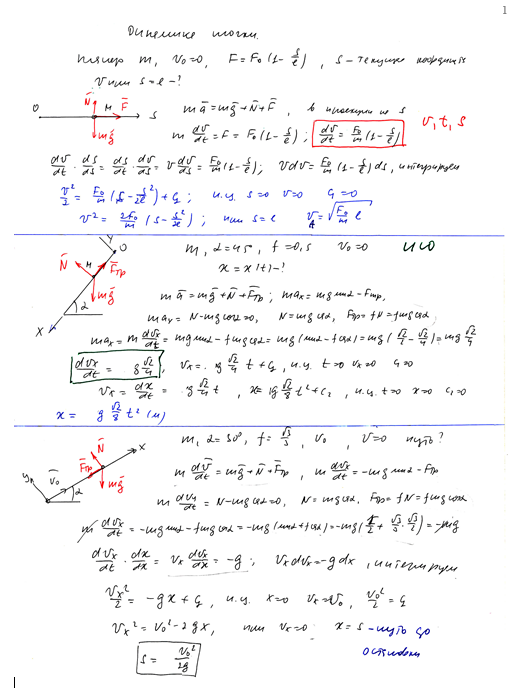 1
Динамика точки.
Пример m, v₀=0, F = F₀(1 - s/ℓ), s - текущая координата
V при s=ℓ - ?
N̄ F̄ O M S mḡ
mā = mḡ + N̄ + F̄, в проекции на s
m dv/dt = F = F₀(1 - s/ℓ); dv/dt = F₀/m (1 - s/ℓ) v, t, s
dv/dt · ds/ds = ds/dt · dv/ds = v dv/ds = F₀/m (1 - s/ℓ); v dv = F₀/m (1 - s/ℓ) ds, интегрируем
v²/2 = F₀/m (s - s²/2ℓ) + C₁; н.у. s=0 v=0 C₁=0
v² = 2F₀/m (s - s²/2ℓ); при s=ℓ v = √(F₀/m ℓ)
m, α=45, f=0,5 v₀=0
x = x(t) - ?
Y O N̄ M F̄тр mḡ α X
mā = mḡ + N̄ + F̄тр; maₓ = mg sinα - Fтр,
maᵧ = N - mg cosα = 0, N = mg cosα, Fтр = fN = fmg cosα
maₓ = m dvₓ/dt = mg sinα - fmg cosα = mg(sinα - f cosα) = mg(√2/2 - √2/4) = mg √2/4
dvₓ/dt = g √2/4, vₓ = g √2/4 t + C₁, н.у. t=0 vₓ=0 C₁=0
vₓ = dx/dt = g √2/4 t, x = g √2/8 t² + C₂, н.у. t=0 x=0 C₂=0
x = g √2/8 t² (м)
m, α=30°, f = √3/3, v₀, v=0 путь?
y N̄ F̄тр v̄₀ α mḡ x
m dv̄/dt = mḡ + N̄ + F̄тр, m dvₓ/dt = -mg sinα - Fтр
m dvᵧ/dt = N - mg cosα = 0, N = mg cosα, Fтр = fN = fmg cosα
m dvₓ/dt = -mg sinα - fmg cosα = -mg(sinα + f cosα) = -mg(1/2 + √3/3 · √3/2) = -mg
dvₓ/dt · dx/dx = vₓ dvₓ/dx = -g; vₓ dvₓ = -g dx, интегрируем
vₓ²/2 = -gx + C₁, н.у. x=0 vₓ=v₀, v₀²/2 = C₁
vₓ² = v₀² - 2gx, при vₓ=0 x = s - путь до
остановки
s = v₀²/2g